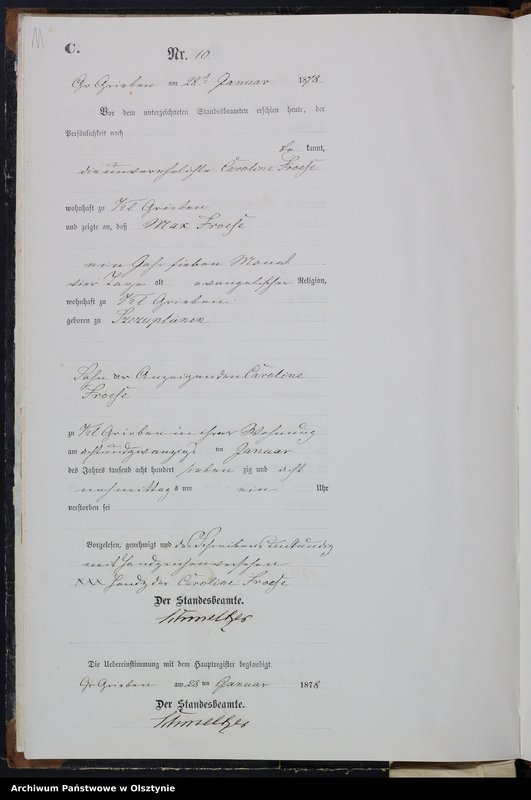 C.
Nr. 10.
Gr Grieben am 28t Januar 1878
Vor dem unterzeichneten Standesbeamten erschien heute, der
Persönlichkeit nach
be kannt,
die unverehelichte Caroline Froese
wohnhaft zu Kl Grieben
und zeigte an, daß Max Froese
ein Jahr sieben Monat
vier Tage alt evangelischer Religion,
wohnhaft zu Kl Grieben
geboren zu
Sohn der Anzeigenden Caroline
Froese
zu Kl Grieben in ihrer Wohnung
am achtundzwanzigs ten Januar
des Jahres tausend acht hundert sieben zig und acht
nachmittags um ein Uhr
verstorben sei
Vorgelesen, genehmigt und des Schreibens unkundig
mit Handzeichen versehen
XXX Handz der Caroline Froese
Der Standesbeamte.
Schmeltzer
Die Uebereinstimmung mit dem Hauptregister beglaubigt.
Gr Grieben am 28 ten Januar 1878
Der Standesbeamte.
Schmeltzer
Archiwum Państwowe w Olsztynie